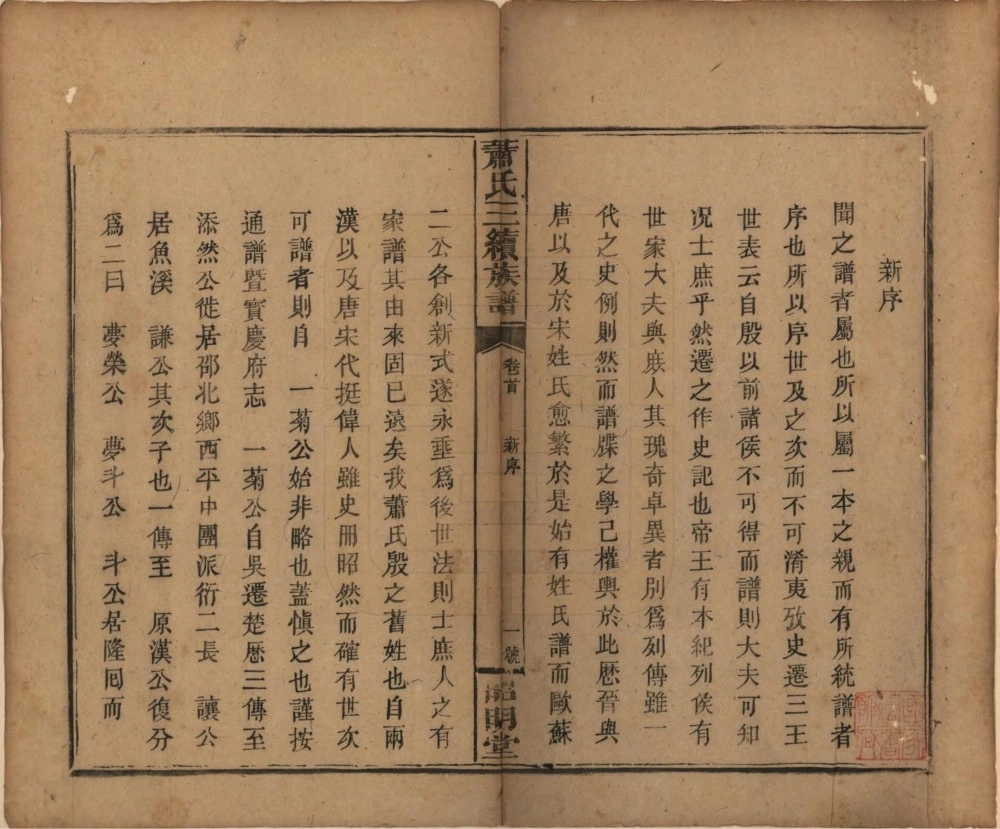 新序
聞之譜者屬也所以屬一本之親而有所統譜者
序也所以序世及之次而不可淆夷攷史遷三王
世表云自殷以前諸侯不可得而譜則大夫可知
况士庶乎然遷之作史記也帝王有本紀列侯有
世家大夫與庻人其瑰奇卓異者別爲列傳雖一
代之史例則然而譜牒之學已權輿於此厯晉與
唐以及於宋姓氏愈繁於是始有姓氏譜而歐蘇
蕭氏三續族譜
卷首
新序
一號
昭明堂
二公各創新式遂永垂爲後世法則士庶人之有
家譜其由來固已遠矣我蕭氏殷之舊姓也自兩
漢以及唐宋代挺偉人雖史册昭然而確有世次
可譜者則自 一菊公始非略也蓋愼之也謹按
通譜暨寶慶府志 一菊公自吳遷楚厯三傳至
添然公徙居邵北鄉西平中團派衍二長 讓公
居魚溪 謙公其次子也一傳至 原漢公復分
爲二曰 夢榮公 夢斗公 斗公居隆囘而